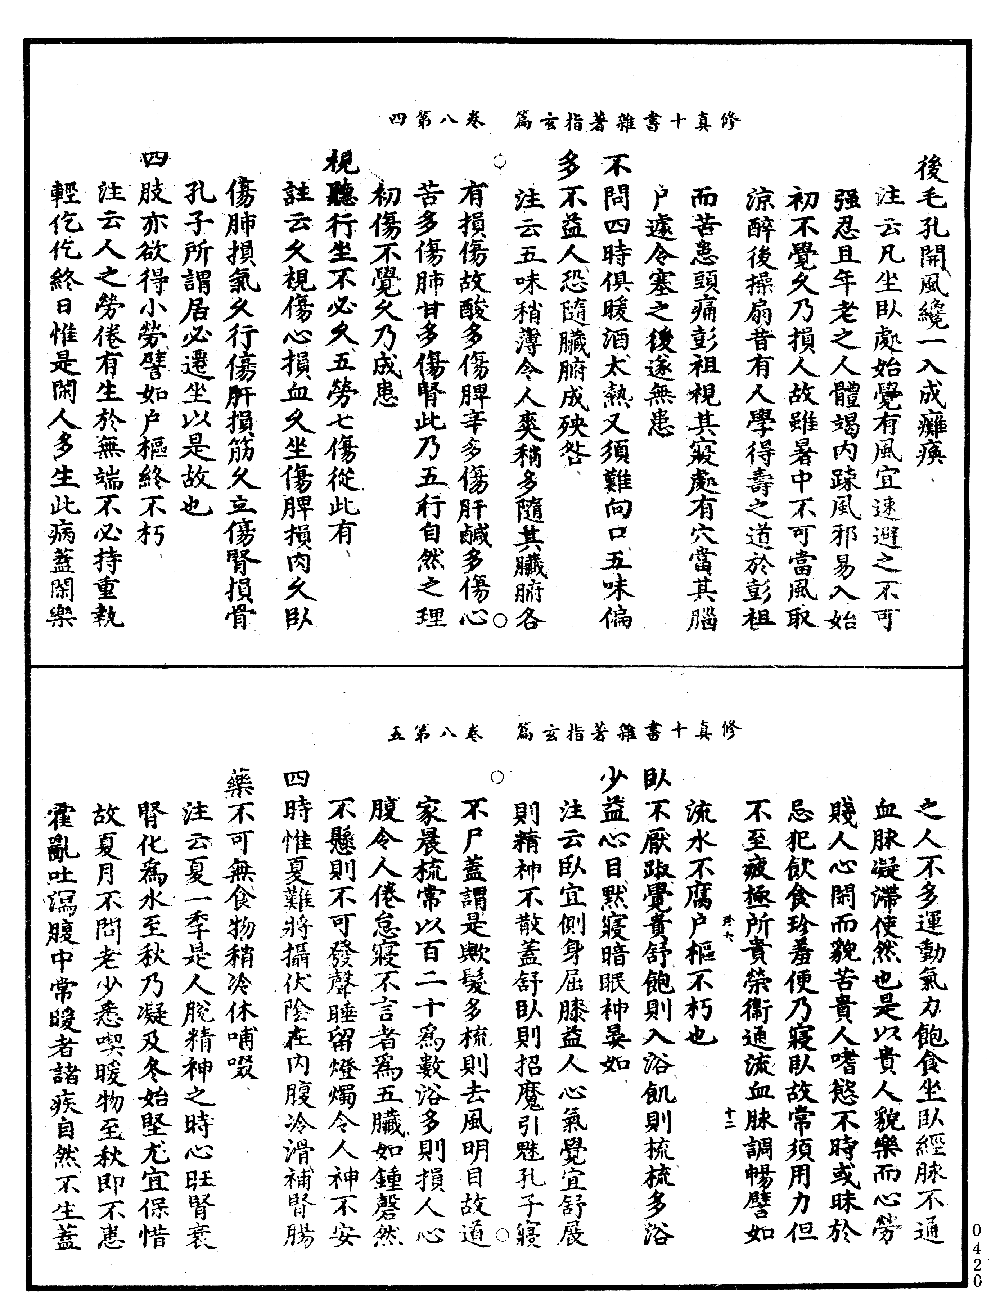 修真十書雜著指玄篇　卷八第四
後毛孔開風纔一入成癱瘓、
注云凡坐臥處始覺有風宜速避之不可
强忍且年老之人體竭內踈風邪易入始
初不覺久乃損人故雖暑中不可當風取
涼醉後操扇昔有人學得壽之道於彭祖
而苦患頭痛彭祖視其寢處有穴當其腦
戶遽令塞之後遂無患
不問四時俱暖酒太熱又須難向口五味偏
多不益人恐隨臟腑成殃咎、
注云五味稍薄令人爽稍多隨其臟腑各
有損傷故酸多傷脾辛多傷肝鹹多傷心
苦多傷肺甘多傷腎此乃五行自然之理
初傷不覺久乃成患
視聽行坐不必久五勞七傷從此有、
註云久視傷心損血久坐傷脾損肉久臥
傷肺損氣久行傷肝損筋久立傷腎損骨
孔子所謂居必遷坐以是故也
四肢亦欲得小勞譬如戶樞終不朽、
注云人之勞倦有生於無端不必持重執
輕仡仡終日惟是閑人多生此病蓋閑樂
修真十書雜著指玄篇　卷八第五
之人不多運動氣力飽食坐臥經脉不通
血脉凝滯使然也是以貴人貌樂而心勞
賤人心閑而貌苦貴人嗜慾不時或昧於
忌犯飲食珍羞便乃寢臥故常須用力但
不至疲極所貴榮衞通流血脉調暢譬如
流水不腐戶樞不朽也
珍六　十二
臥不厭踧覺貴舒飽則入浴飢則梳梳多浴
少益心目默寢暗眠神晏如
注云臥宜側身屈膝益人心氣覺宜舒展
則精神不散蓋舒臥則招魔引魅孔子寢
不尸蓋謂是歟髮多梳則去風明目故道
家晨梳常以百二十爲數浴多則損人心
腹令人倦怠寢不言者爲五臟如鍾磬然
不懸則不可發聲睡留燈燭令人神不安
四時惟夏難將攝伏陰在內腹冷滑補腎腸
藥不可無食物稍冷休哺啜、
注云夏一季是人脫精神之時心旺腎衰
腎化爲水至秋乃凝及冬始堅尤宜保惜
故夏月不問老少悉喫暖物至秋即不患
霍亂吐瀉腹中常暖者諸疾自然不生蓋
0420